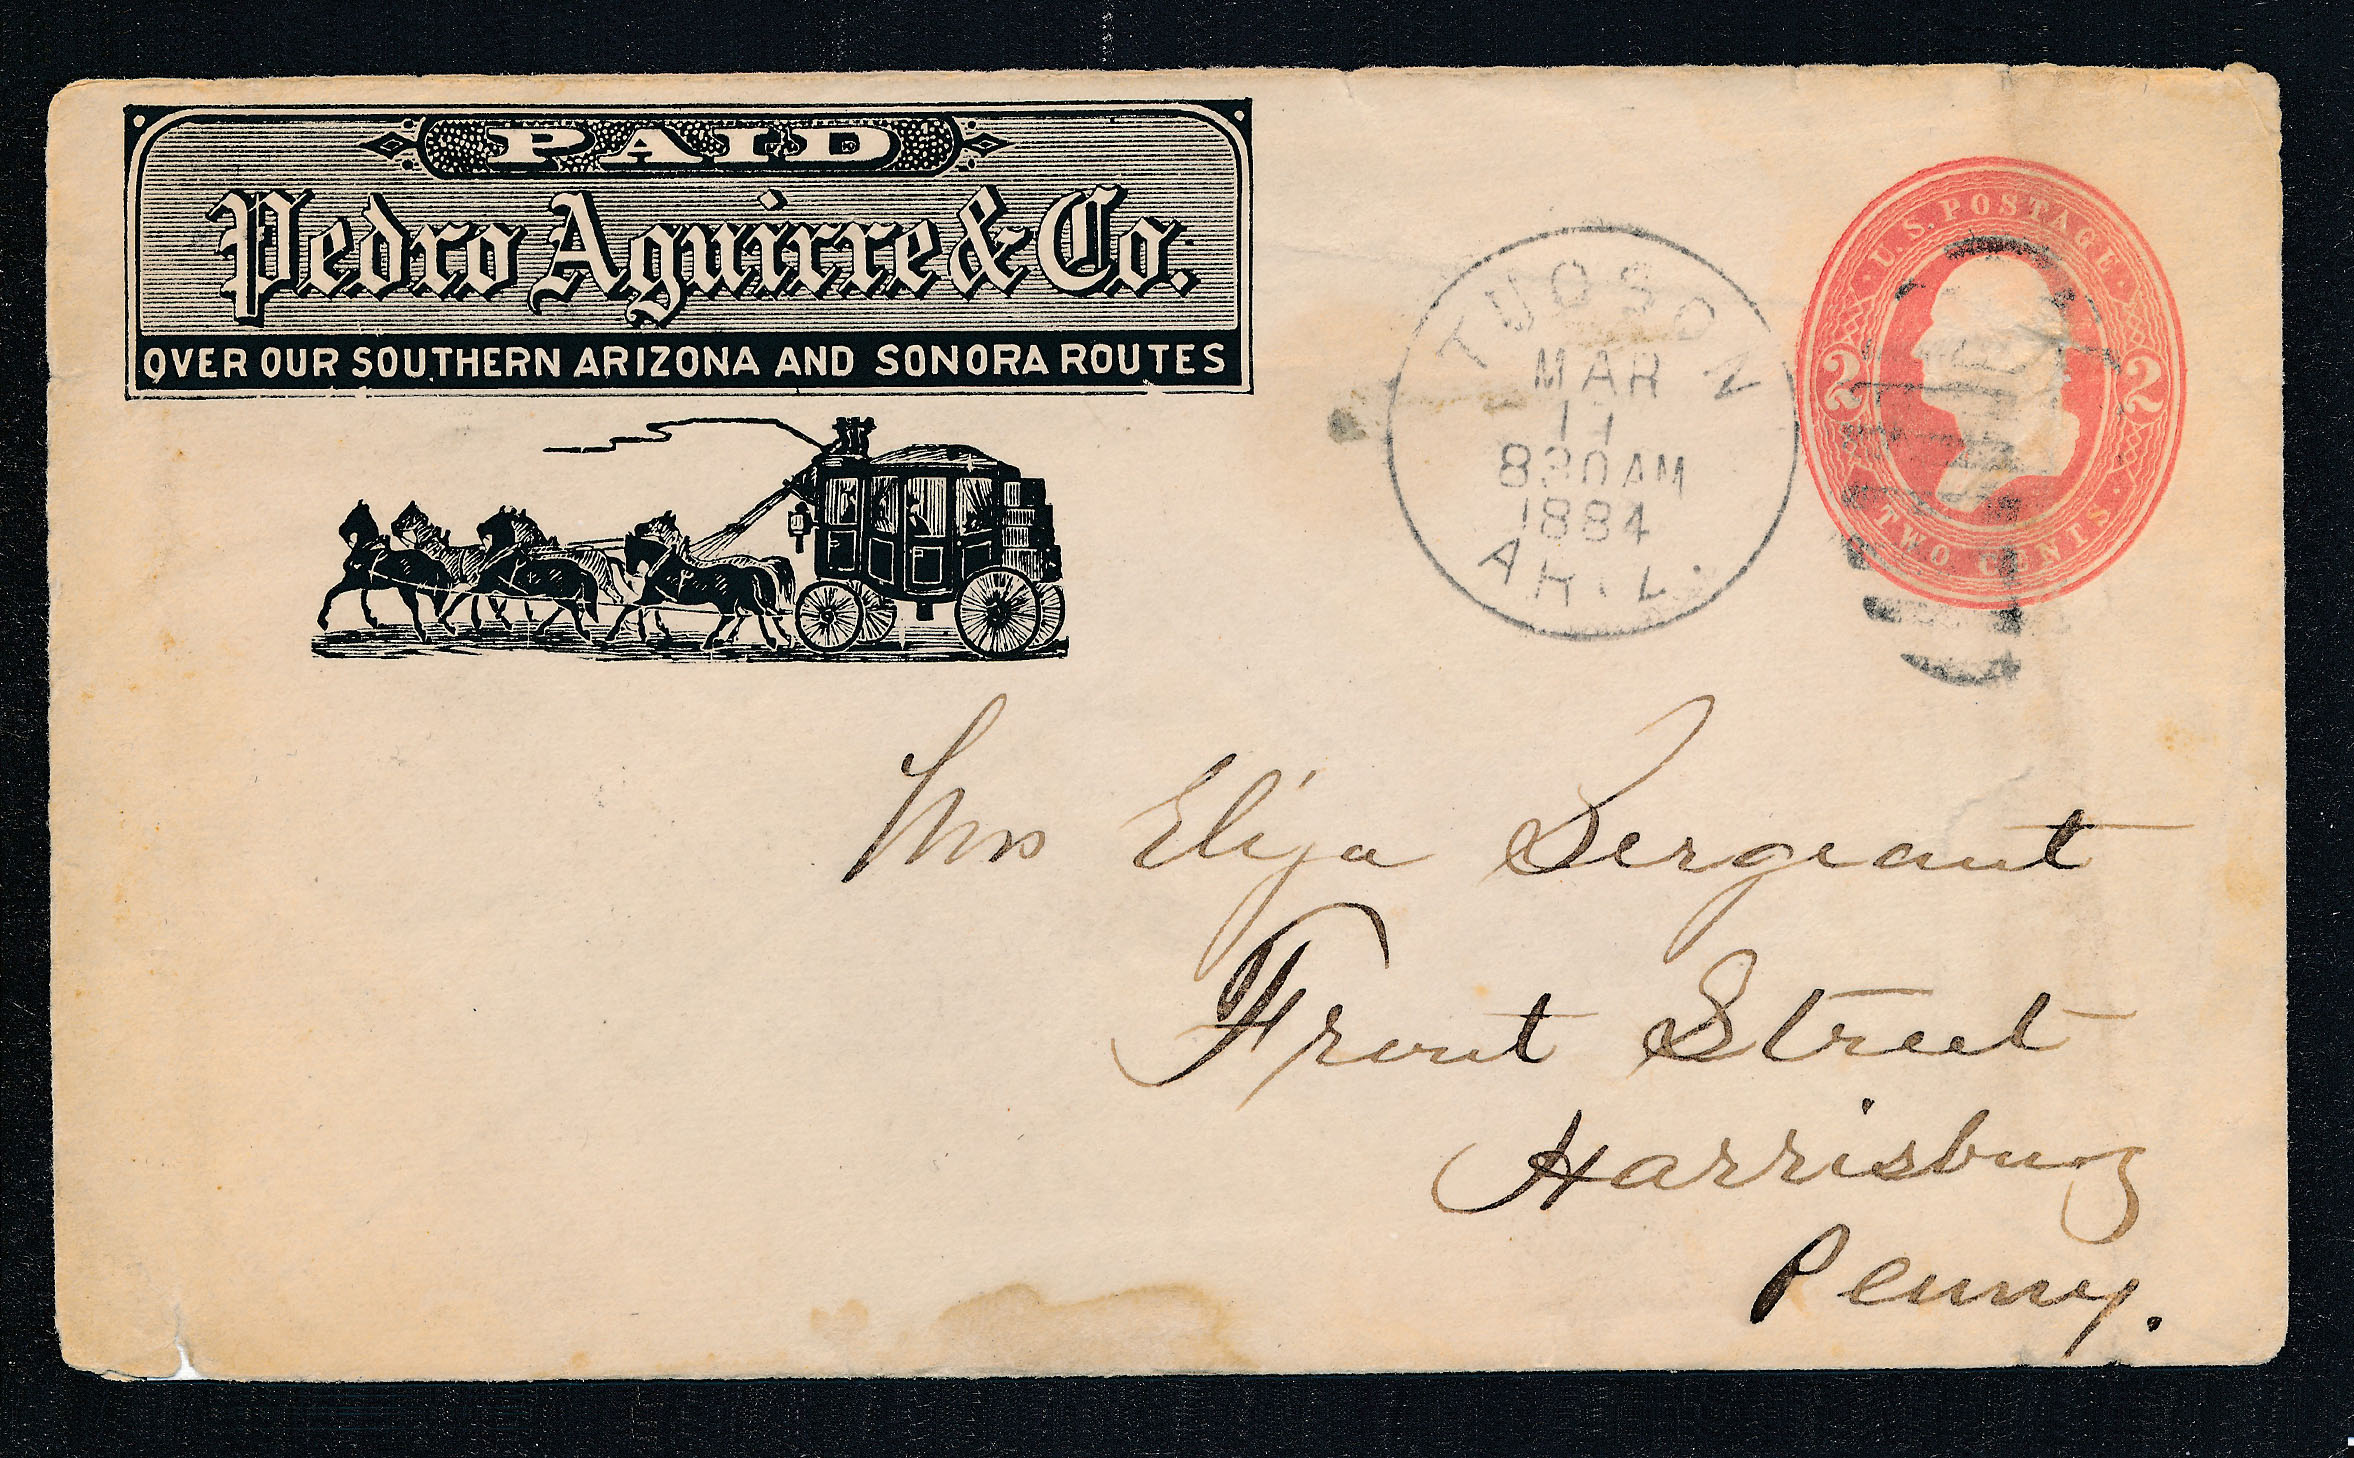 PAID
Pedro Aguirre & Co.
OVER OUR SOUTHERN ARIZONA AND SONORA ROUTES
TUCSON
MAR
11
830AM
1884
ARIZ.
U.S. POSTAGE
2 2
TWO CENTS
Mrs Eliza Sergeant
Front Street
Harrisburg
Penny.